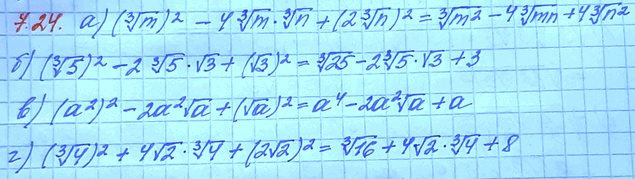 7.24. а) (∛m)² - 4∛m · ∛n + (2∛n)² = ∛m² - 4∛mn + 4∛n²
б) (∛5)² - 2∛5 · √3 + (√3)² = ∛25 - 2∛5 · √3 + 3
в) (a²)² - 2a²√a + (√a)² = a⁴ - 2a²√a + a
г) (∛4)² + 4√2 · ∛4 + (2√2)² = ∛16 + 4√2 · ∛4 + 8